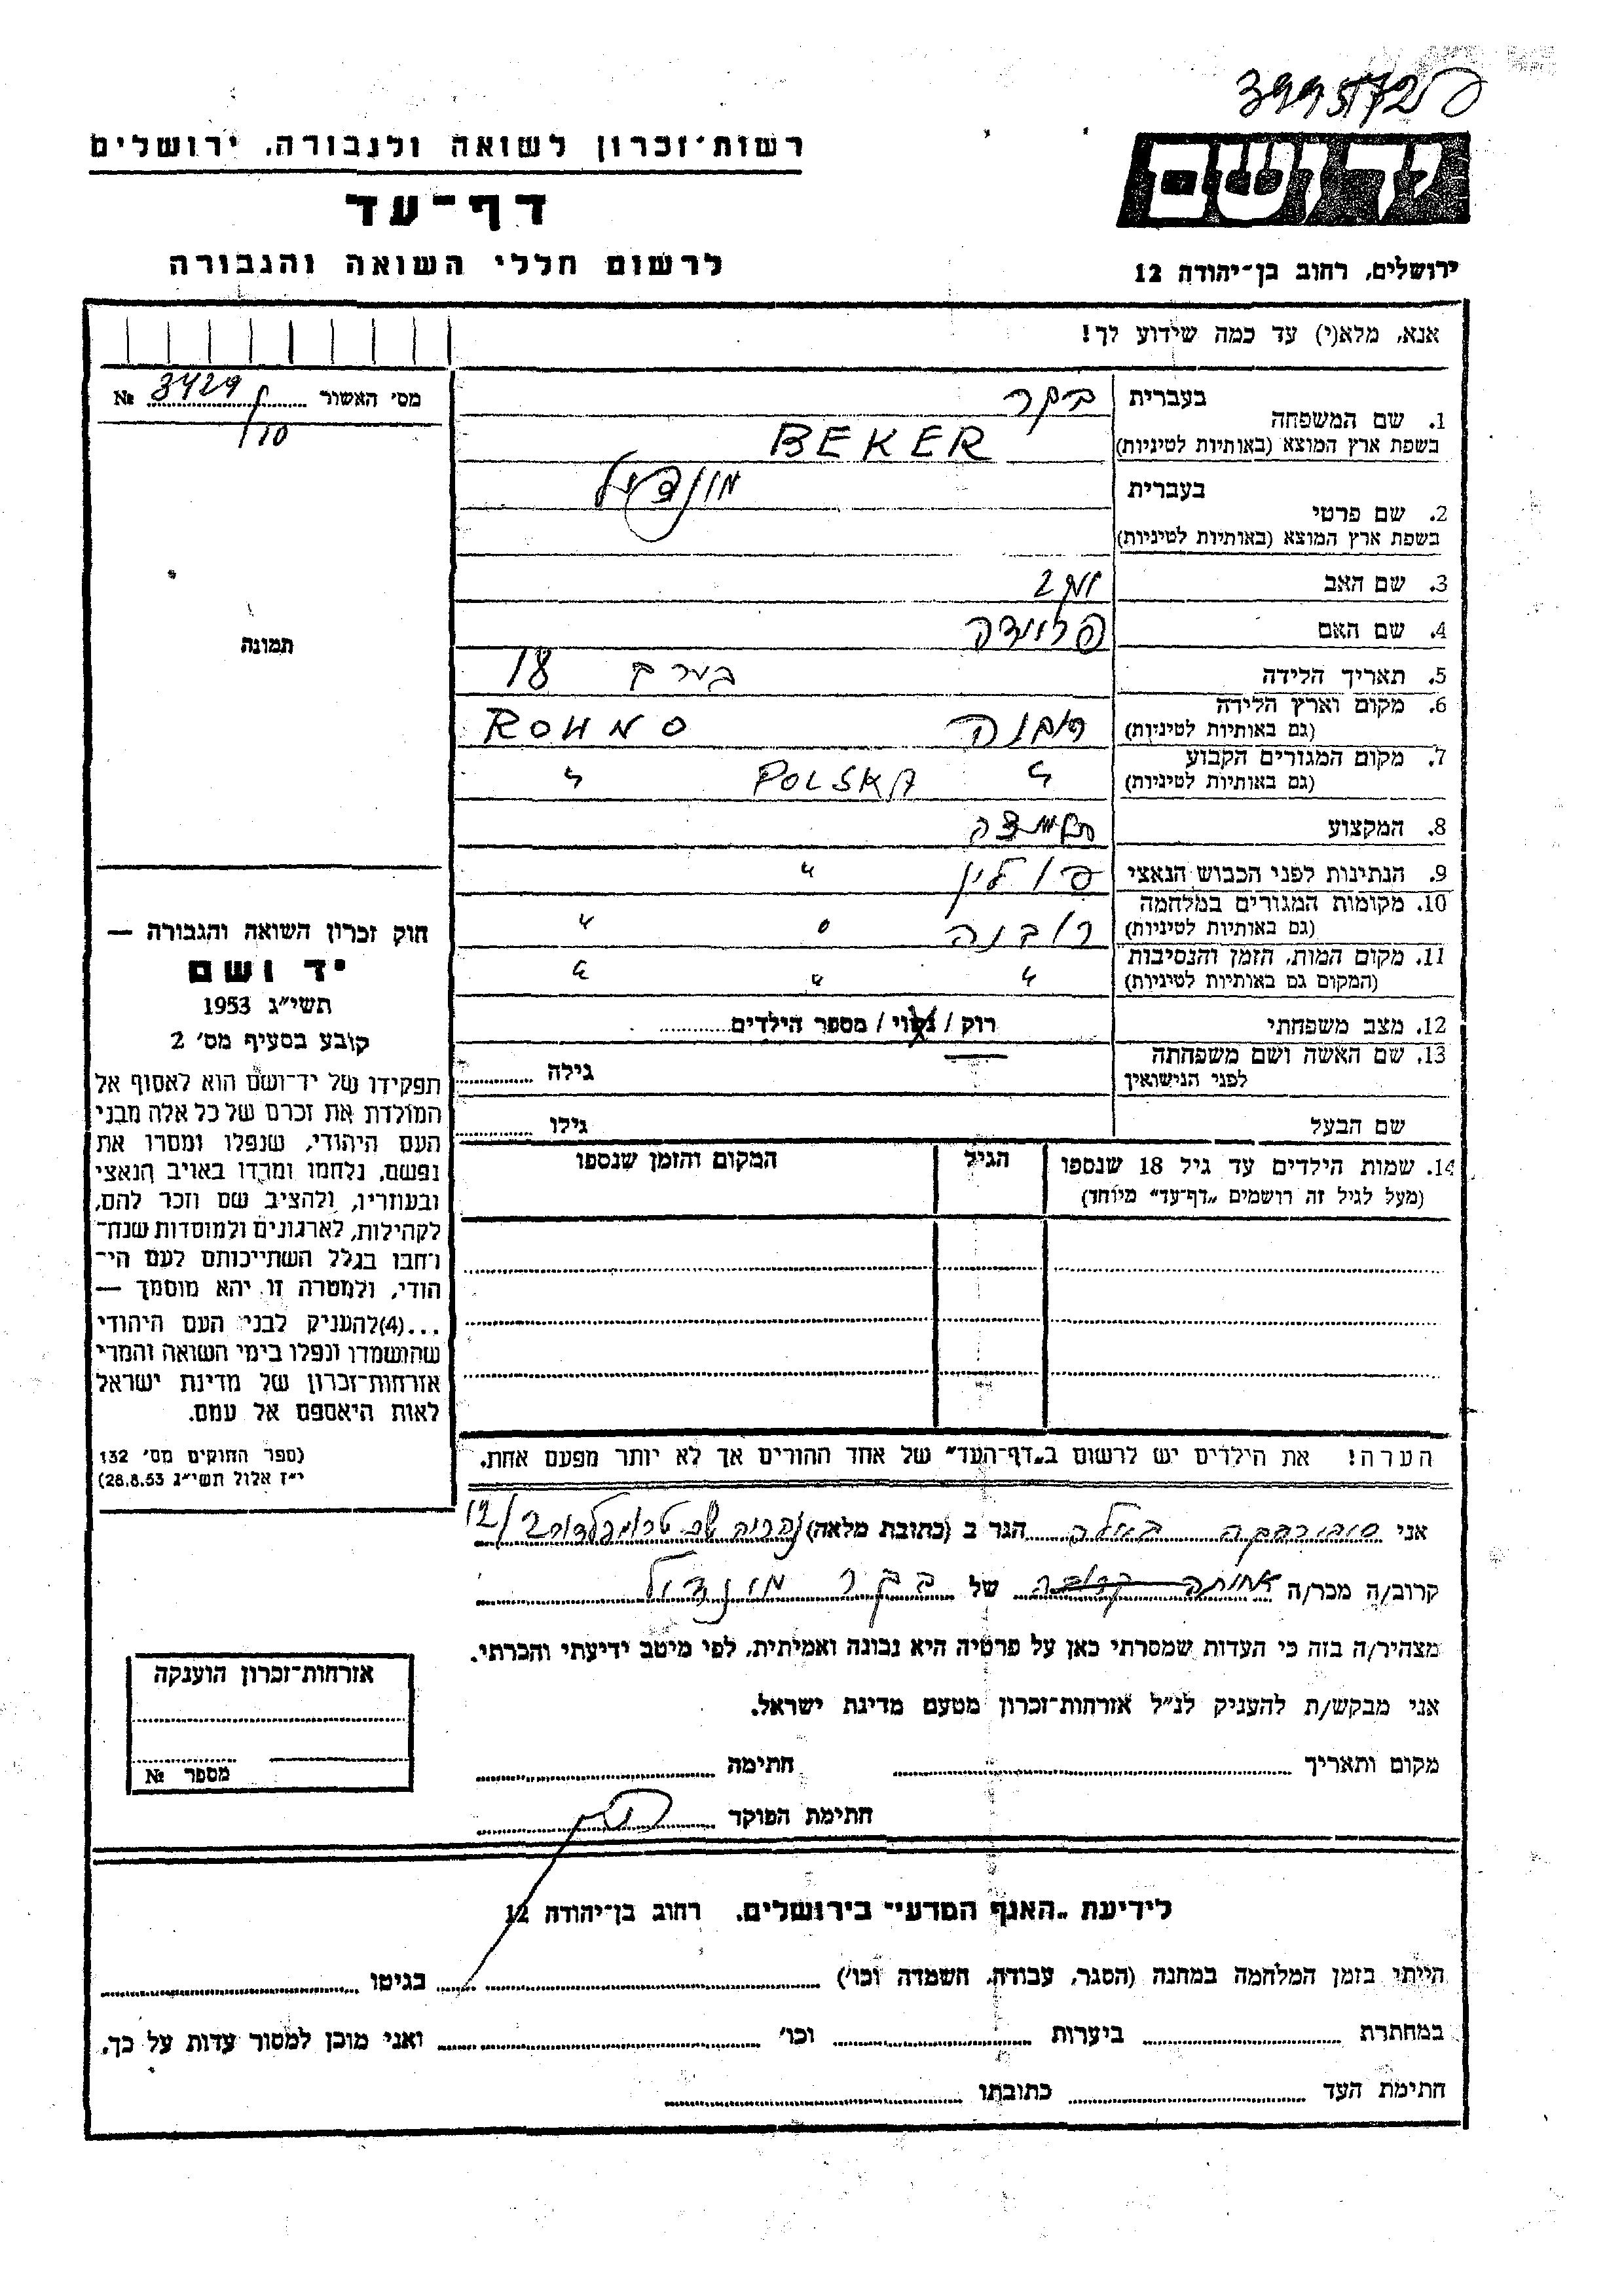 רשות־זכרון לשואה ולגבורה, ירושלים
דף־עד
לרשום חללי השואה והגבורה
יד ושם
ירושלים, רחוב בן־יהודה 12
אנא, מלא(י) עד כמה שידוע לך!
מס׳ האשור 3429 №
/10
1. שם המשפחה
בעברית בקר
בשפת ארץ המוצא (באותיות לטיניות) BEKER
2. שם פרטי
בעברית
בשפת ארץ המוצא (באותיות לטיניות)
3. שם האב
4. שם האם
5. תאריך הלידה 18
6. מקום וארץ הלידה
(גם באותיות לטיניות) ROWNO
7. מקום המגורים הקבוע
(גם באותיות לטיניות) " POLSKA "
8. המקצוע
9. הנתינות לפני הכבוש הנאצי פולין "
10. מקומות המגורים במלחמה
(גם באותיות לטיניות) רובנה " "
11. מקום המות, הזמן והנסיבות
(המקום גם באותיות לטיניות) " " "
12. מצב משפחתי רוק / נשוי / מספר הילדים
13. שם האשה ושם משפחתה
לפני הנישואין גילה
שם הבעל גילו
14. שמות הילדים עד גיל 18 שנספו הגיל המקום והזמן שנספו
(מעל לגיל זה רושמים „דף־עד” מיוחד)
הערה! את הילדים יש לרשום ב„דף־העד” של אחד ההורים אך לא יותר מפעם אחת.
תמונה
חוק זכרון השואה והגבורה —
יד ושם
תשי״ג 1953
קובע בסעיף מס׳ 2
תפקידו של יד־ושם הוא לאסוף אל
המולדת את זכרם של כל אלה מבני
העם היהודי, שנפלו ומסרו את
נפשם, נלחמו ומרדו באויב הנאצי
ובעוזריו, ולהציב שם וזכר להם,
לקהילות, לארגונים ולמוסדות שנח־
רחבו בגלל השתייכותם לעם הי־
הודי, ולמטרה זו יהא מוסמך —
...(4)להעניק לבני העם היהודי
שהושמדו ונפלו בימי השואה והמרי
אזרחות־זכרון של מדינת ישראל
לאות היאספם אל עמם.
(ספר החוקים מס׳ 132
י״ז אלול תשי״ג 28.8.53)
אני הגר ב (כתובת מלאה) 12/
קרוב/ה מכר/ה אחותה של בקר מונדל
מצהיר/ה בזה כי העדות שמסרתי כאן על פרטיה היא נכונה ואמיתית, לפי מיטב ידיעתי והכרתי.
אני מבקש/ת להעניק לנ״ל אזרחות־זכרון מטעם מדינת ישראל.
מקום ותאריך חתימה
חתימת הפוקד
אזרחות־זכרון הוענקה
מספר №
לידיעת „האגף המדעי” בירושלים, רחוב בן־יהודה 12
הייתי בזמן המלחמה במחנה (הסגר, עבודה, השמדה וכו׳) בגיטו
במחתרת ביערות וכו׳ ואני מוכן למסור עדות על כך.
חתימת העד כתובתו